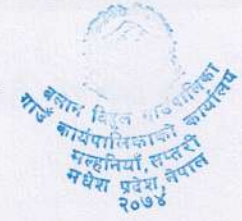 बलान बिहुल गाउँपालिका
गाउँ कार्यपालिकाको कार्यालय
मल्हनियाँ, सप्तरी
मधेश प्रदेश, नेपाल
२०७४